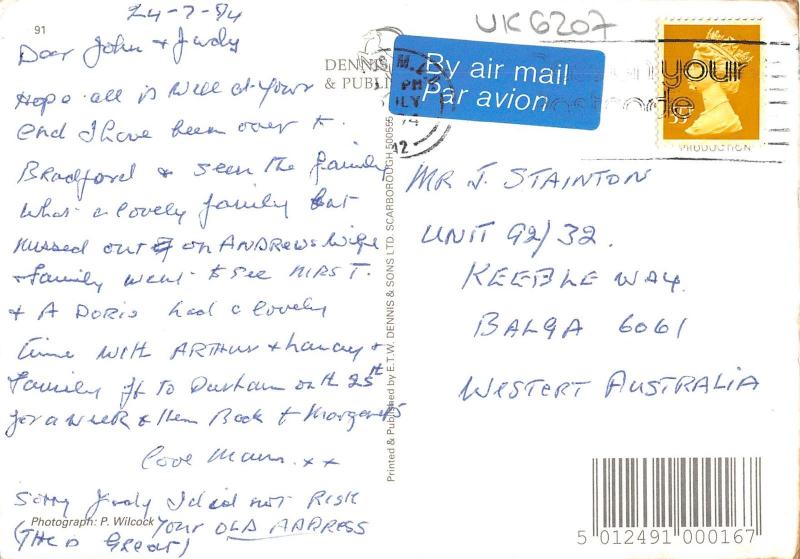 91
24-7-94
Dear John & Judy
Hope all is well at your
end I have been over to
Bradford & seen the family
what a lovely family but
missed out on ANDREWS wife
& family went to see MRS T.
& A DORIS had a lovely
time with ARTHUR & &
family off to Durham on the 25th
for a week & then Back to Margarets
love Mam. xx
Sorry Judy I did not RISK
Photograph: P. Wilcock
YOUR OLD ADDRESS
(THE D Great)
DENNIS
& PUBLI
Printed & Published by E.T.W. DENNIS & SONS LTD. SCARBOROUGH 500555
UK6207
By air mail
Par avion
PM
LY
94
42
your
code
PRODUCTION
MR J. STAINTON
UNIT 92/32.
KEEBLE WAY.
BALGA 6061
WESTERT AUSTRALIA
5 012491 000167